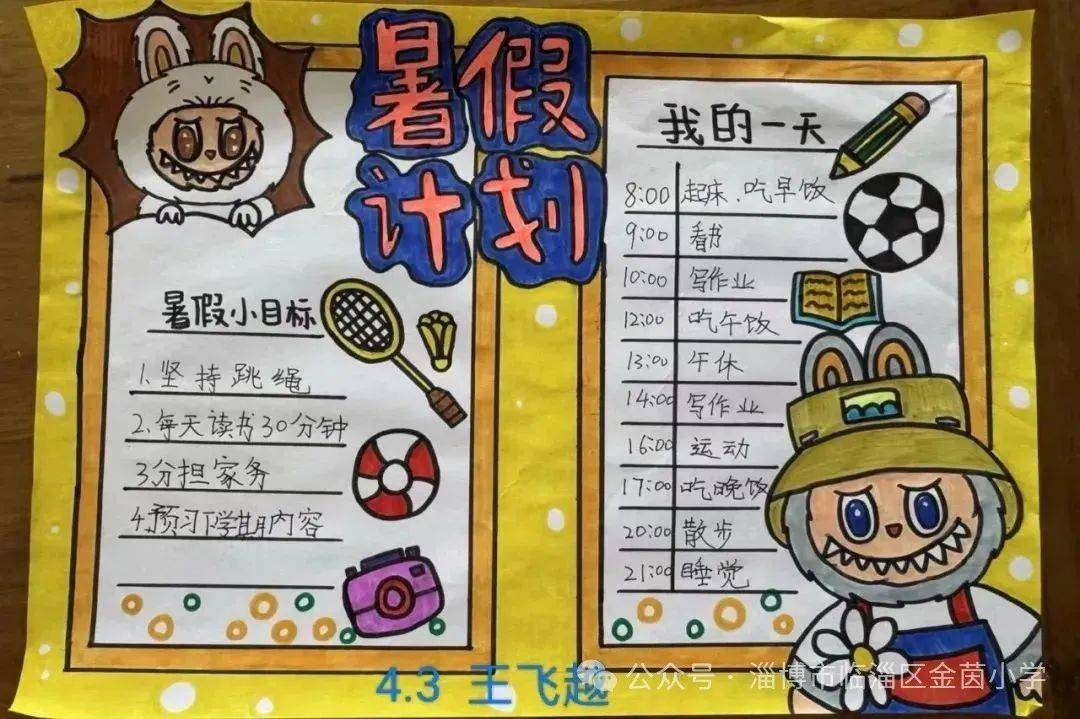 暑假
计划
暑假小目标
1.坚持跳绳
2.每天读书30分钟
3.分担家务
4.预习下学期内容
我的一天
8:00 起床、吃早饭
9:00 看书
10:00 写作业
12:00 吃午饭
13:00 午休
14:00 写作业
16:00 运动
17:00 吃晚饭
20:00 散步
21:00 睡觉
4.3 王飞越
公众号·淄博市临淄区金茵小学